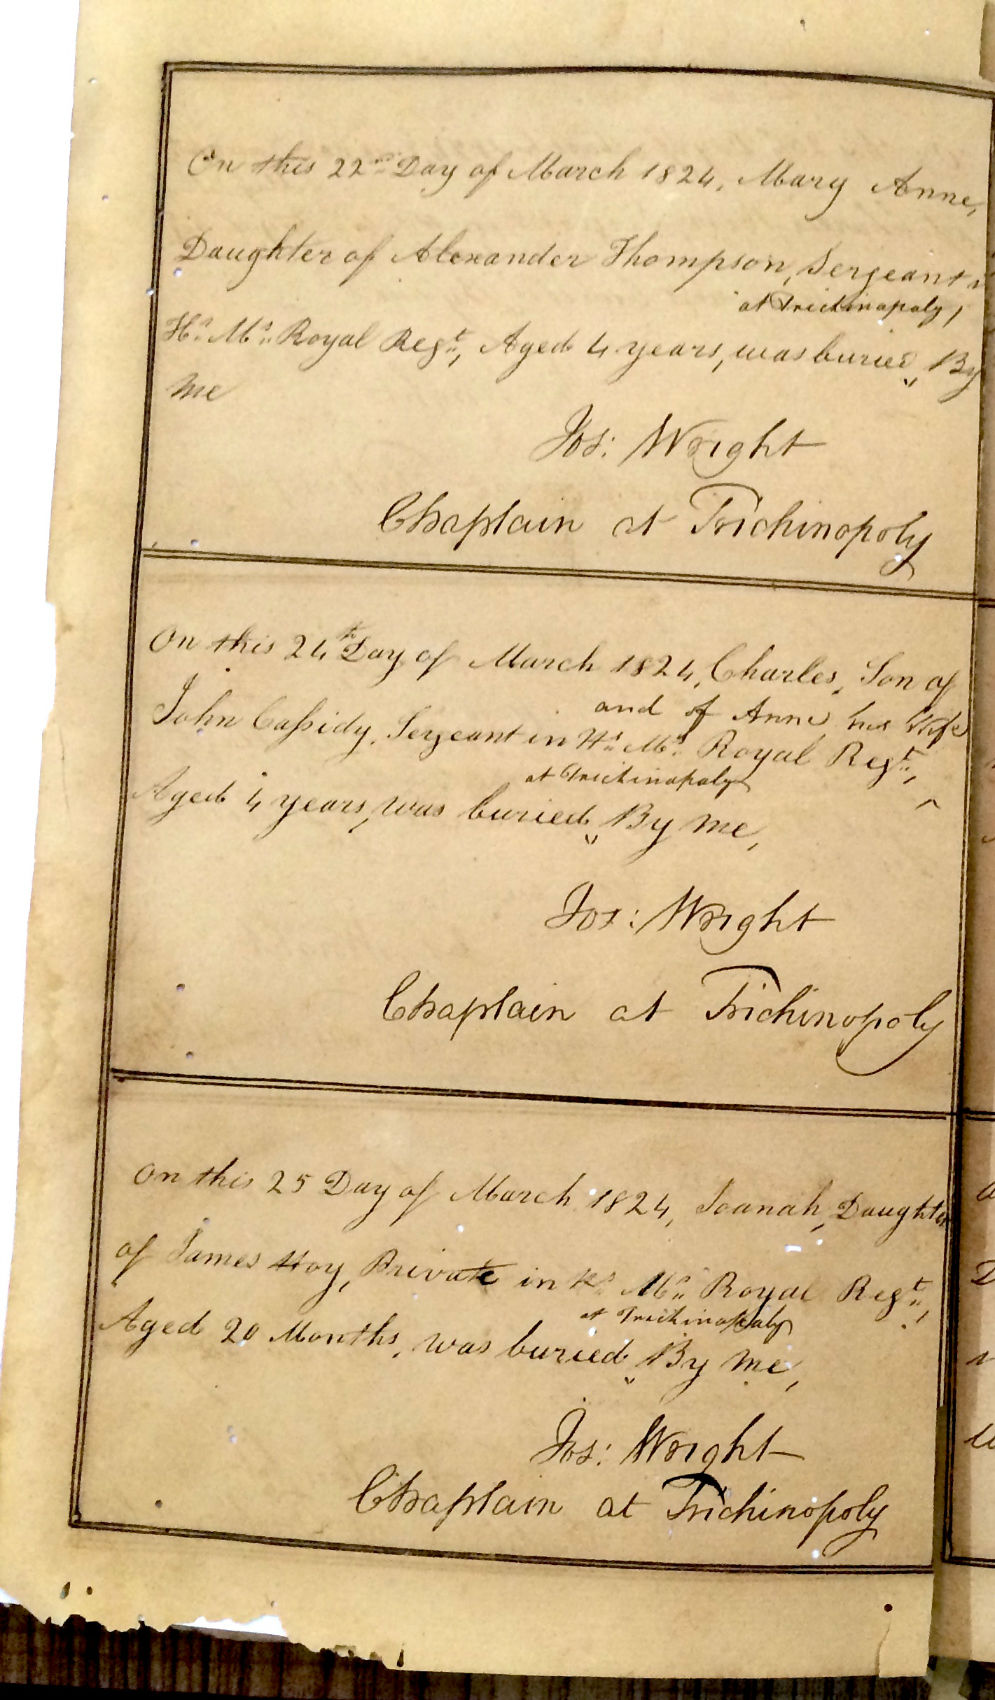 On this 22nd Day of March 1824, Mary Anne,
Daughter of Alexander Thompson, Sergeant
at Trichinopoly,
Hs. Ms. Royal Regt., Aged 4 years, was buried, By
me
Jos: Wright
Chaplain at Trichinopoly
On this 24th Day of March 1824, Charles, Son of
and of Anne his Wife
John Cassidy, Sergeant in Hs. Ms. Royal Regt.,
at Trichinopoly
Aged 4 years, was buried, By me,
Jos: Wright
Chaplain at Trichinopoly
On this 25 Day of March 1824, Joanah, Daughter
of James Hoy, Private in Hs. Ms. Royal Regt.,
at Trichinopoly
Aged 20 Months, was buried, By me,
Jos: Wright
Chaplain at Trichinopoly